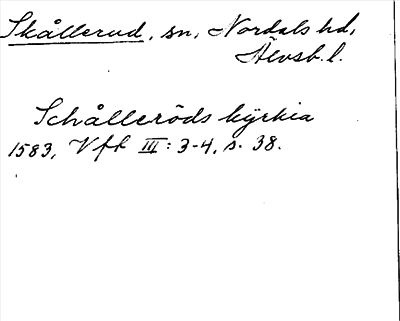 Skållerud, sn, Nordals hd,
Älvsb. l.
Schålleröds kyrkia
1583, Vfh III: 3-4, s. 38.